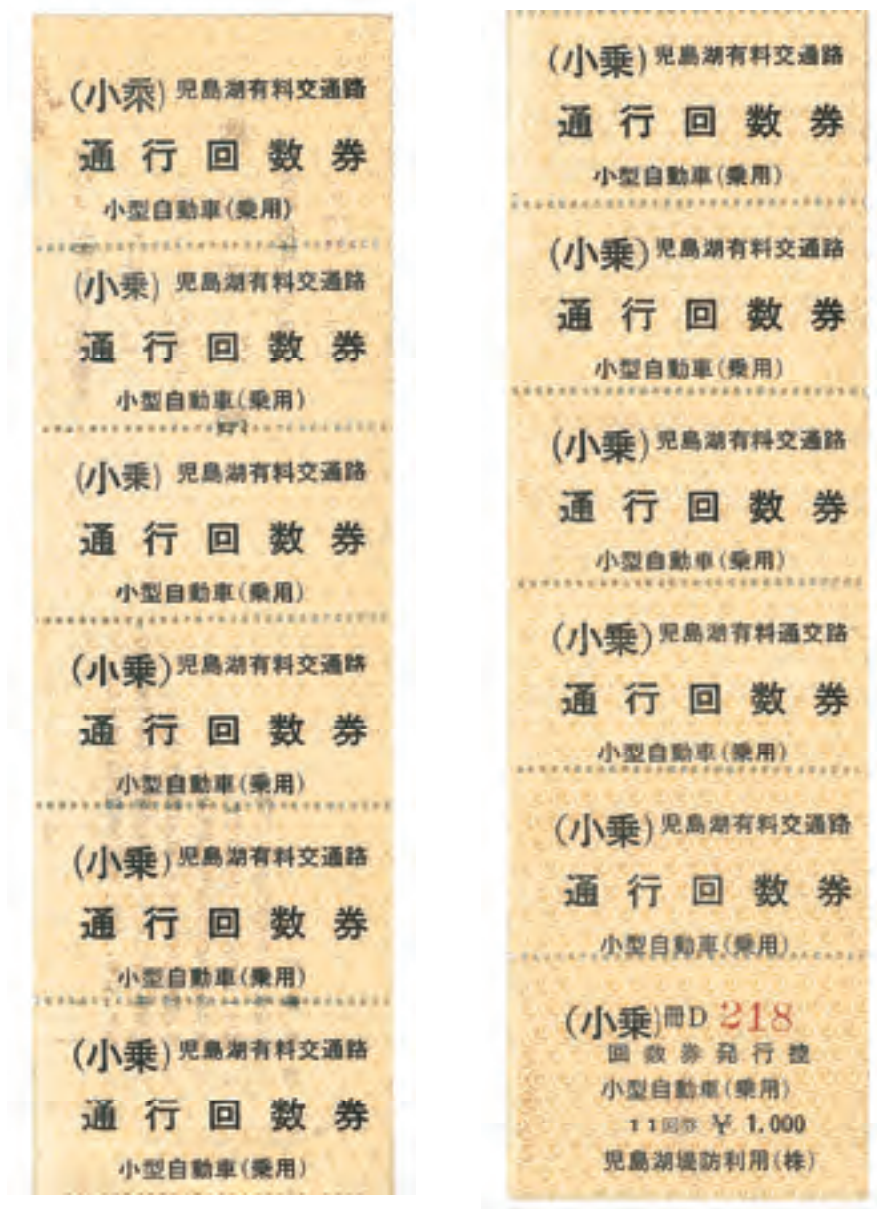 (小乗) 児島湖有料交通路
通行回数券
小型自動車(乗用)
(小乗) 児島湖有料交通路
通行回数券
小型自動車(乗用)
(小乗) 児島湖有料交通路
通行回数券
小型自動車(乗用)
(小乗) 児島湖有料交通路
通行回数券
小型自動車(乗用)
(小乗) 児島湖有料交通路
通行回数券
小型自動車(乗用)
(小乗) 児島湖有料交通路
通行回数券
小型自動車(乗用)
(小乗) 児島湖有料交通路
通行回数券
小型自動車(乗用)
(小乗) 児島湖有料交通路
通行回数券
小型自動車(乗用)
(小乗) 児島湖有料交通路
通行回数券
小型自動車(乗用)
(小乗) 児島湖有料通交路
通行回数券
小型自動車(乗用)
(小乗) 児島湖有料交通路
通行回数券
小型自動車(乗用)
(小乗)冊D 218
回数券発行控
小型自動車(乗用)
11回券 ¥ 1,000
児島湖堤防利用(株)